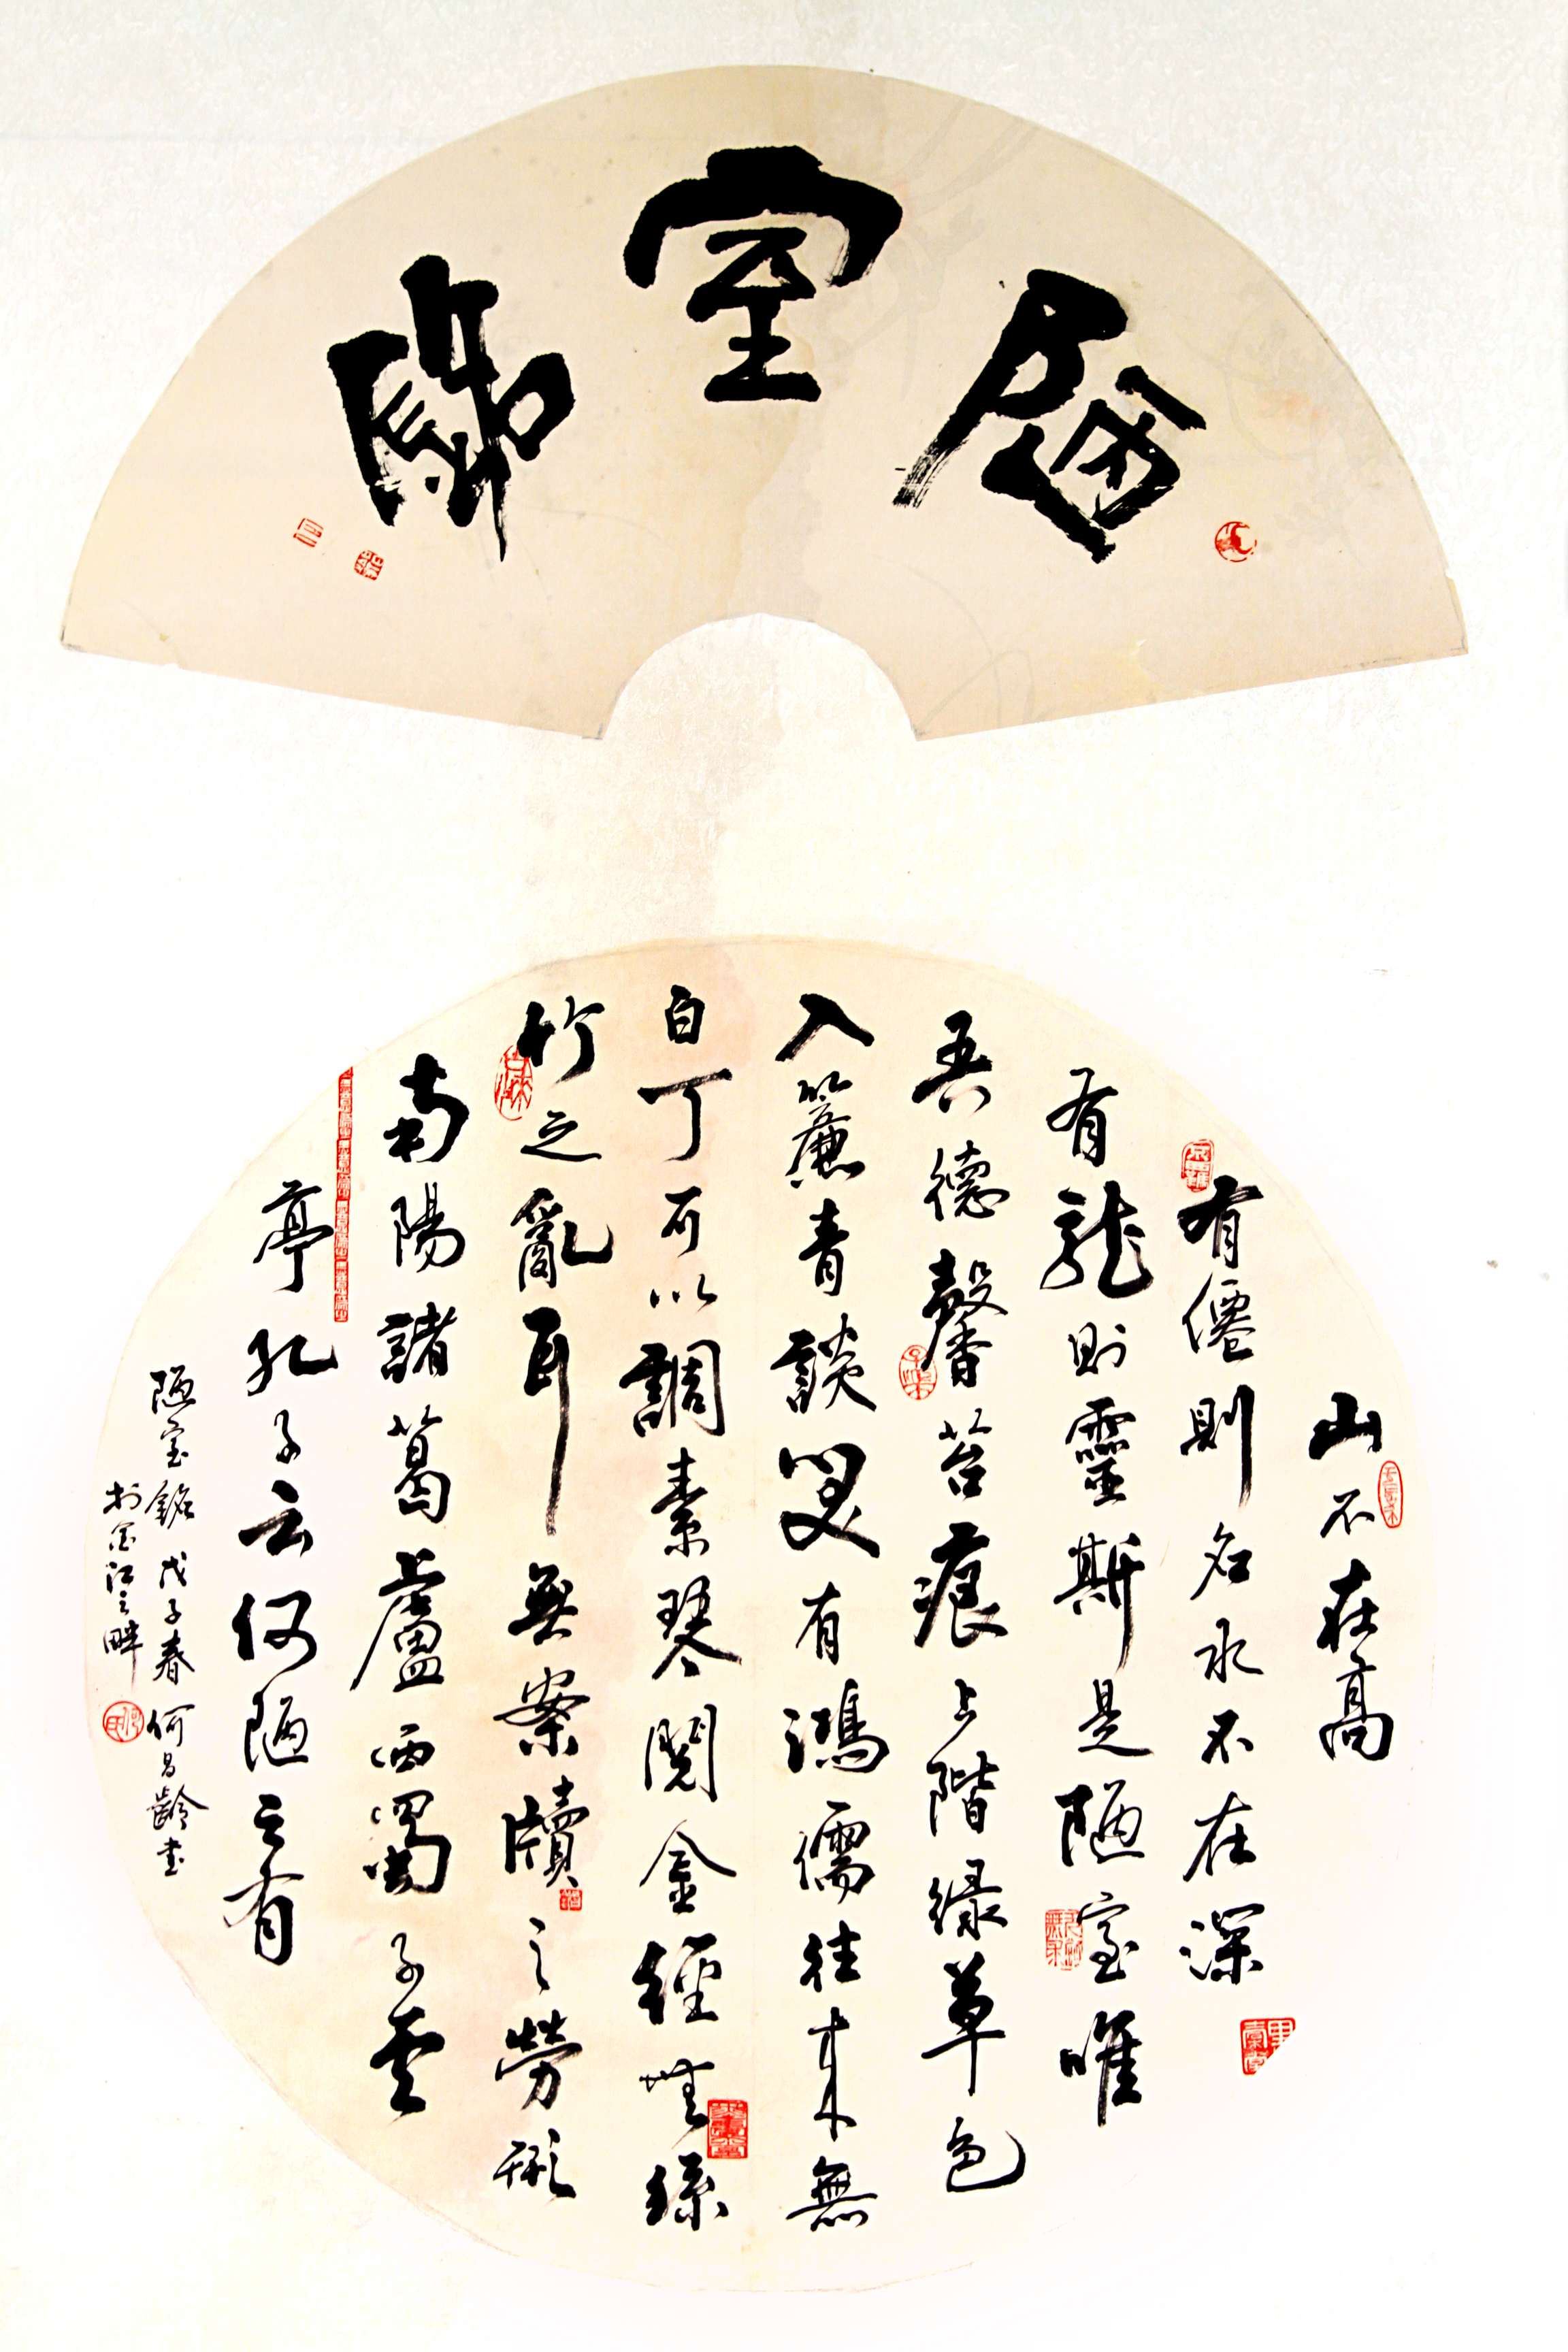 陋室銘
山不在高
有僊則名水不在深
有龍則靈斯是陋室唯
吾德馨苔痕上階緑草色
入簾青談笑有鴻儒往来無
白丁可以調素琴閱金經無絲
竹之亂耳無案牘之勞形
南陽諸葛廬西蜀子雲
亭孔子云何陋之有
陋室銘 戊子春 何昌齡书
於金江之畔